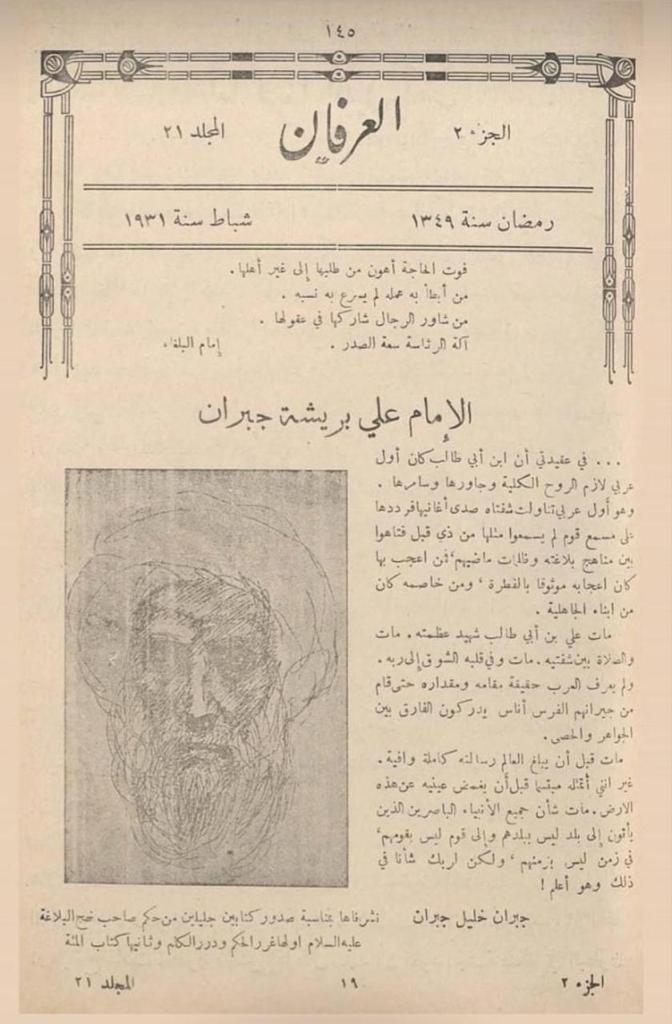 ١٤٥
الجزء ٢
العرفان
المجلد ٢١
رمضان سنة ١٣٤٩
شباط سنة ١٩٣١
فوت الحاجة أهون من طلبها إلى غير أهلها .
من أبطأ به عمله لم يسرع به نسبه .
من شاور الرجال شاركها في عقولها .
آلة الرئاسة سعة الصدر .
إمام البلغاء
الإمام علي بريشة جبران
... في عقيدتي أن ابن أبي طالب كان أول
عربي لازم الروح الكلية وجاورها وسامرها .
وهو أول عربي تناولت شفتاه صدى أغانيها فرددها
على مسمع قوم لم يسمعوا مثلها من ذي قبل فتاهوا
بين مناهج بلاغته وظلمات ماضيهم ، فمن اعجب بها
كان اعجابه موثوقا بالفطرة ، ومن خاصمه كان
من ابناء الجاهلية .
مات علي بن أبي طالب شهيد عظمته . مات
والصلاة بين شفتيه . مات وفي قلبه الشوق إلى ربه .
ولم يعرف العرب حقيقة مقامه ومقداره حتى قام
من جيرانهم الفرس أناس يدركون الفارق بين
الجواهر والحصى .
مات قبل أن يبلغ العالم رسالته كاملة وافية .
غير انني أتمثله مبتسما قبل أن يغمض عينيه عن هذه
الارض . مات شأن جميع الأنبياء الباصرين الذين
يأتون إلى بلد ليس ببلدهم وإلى قوم ليس بقومهم ،
في زمن ليس بزمنهم ، ولكن لربك شأنا في
ذلك وهو أعلم !
جبران خليل جبران
نشرناها بمناسبة صدور كتابين جليلين من حكم صاحب نهج البلاغة
عليه السلام اولها غرر الحكم ودرر الكلم وثانيها كتاب المئة
الجزء ٢
١٩
المجلد ٢١